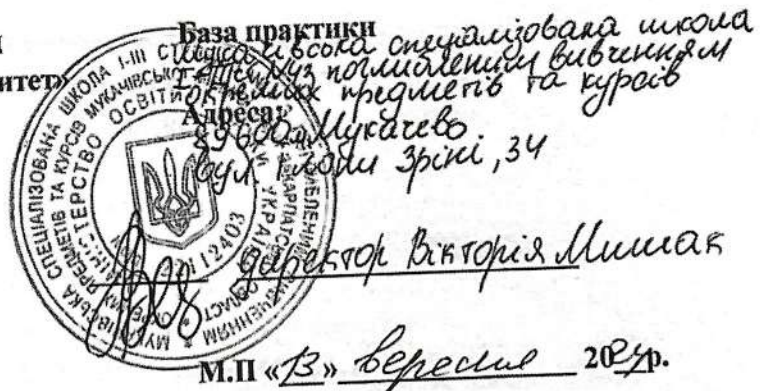 База практики
Мукачівська спеціалізована школа
І-ІІІ ст. №3 з поглибленим вивченням
окремих предметів та курсів
Адреса:
89600 м. Мукачево
вул. Ілони Зріні, 34
директор Вікторія Мишак
М.П «13» вересня 2024р.
итет»
МУКАЧІВСЬКА СПЕЦІАЛІЗОВАНА ШКОЛА І-ІІІ
ПРЕДМЕТІВ ТА КУРСІВ МУКАЧІВСЬКОЇ
МІНІСТЕРСТВО ОСВІТИ
УКРАЇНИ